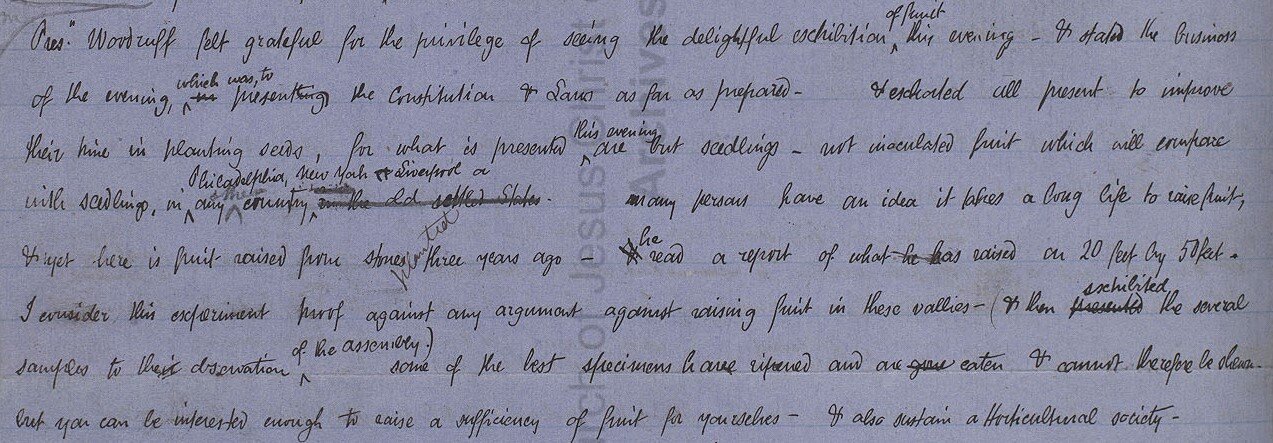 Pres.t Woodruff felt grateful for the privilege of seeing the delightful eschibition of fruit this evening - & stated the business
of the evening, which was, to presenting the Constitution & Laws as far as prepared - & eschorted all present to improve
their time in planting seeds, for what is presented this evening are but seedlings - not inoculated fruit which will compare
with seedlings, in any other country, Philadelphia, New York or Liverpool or in the old settled States. many persons have an idea it takes a long life to raise fruit,
& yet here is fruit raised from stones planted three years ago - he read a report of what he has raised on 20 feet by 50 feet.
I consider this experiment proof against any argument against raising fruit in these vallies - (& then presented eschibited the several
samples to their observation of the assembly.) some of the best specimens have ripened and are gone eaten & cannot therefore be shewn -
but you can be interested enough to raise a sufficiency of fruit for yourselves - & also sustain a Horticultural society -
Church of Jesus Christ of
Archives